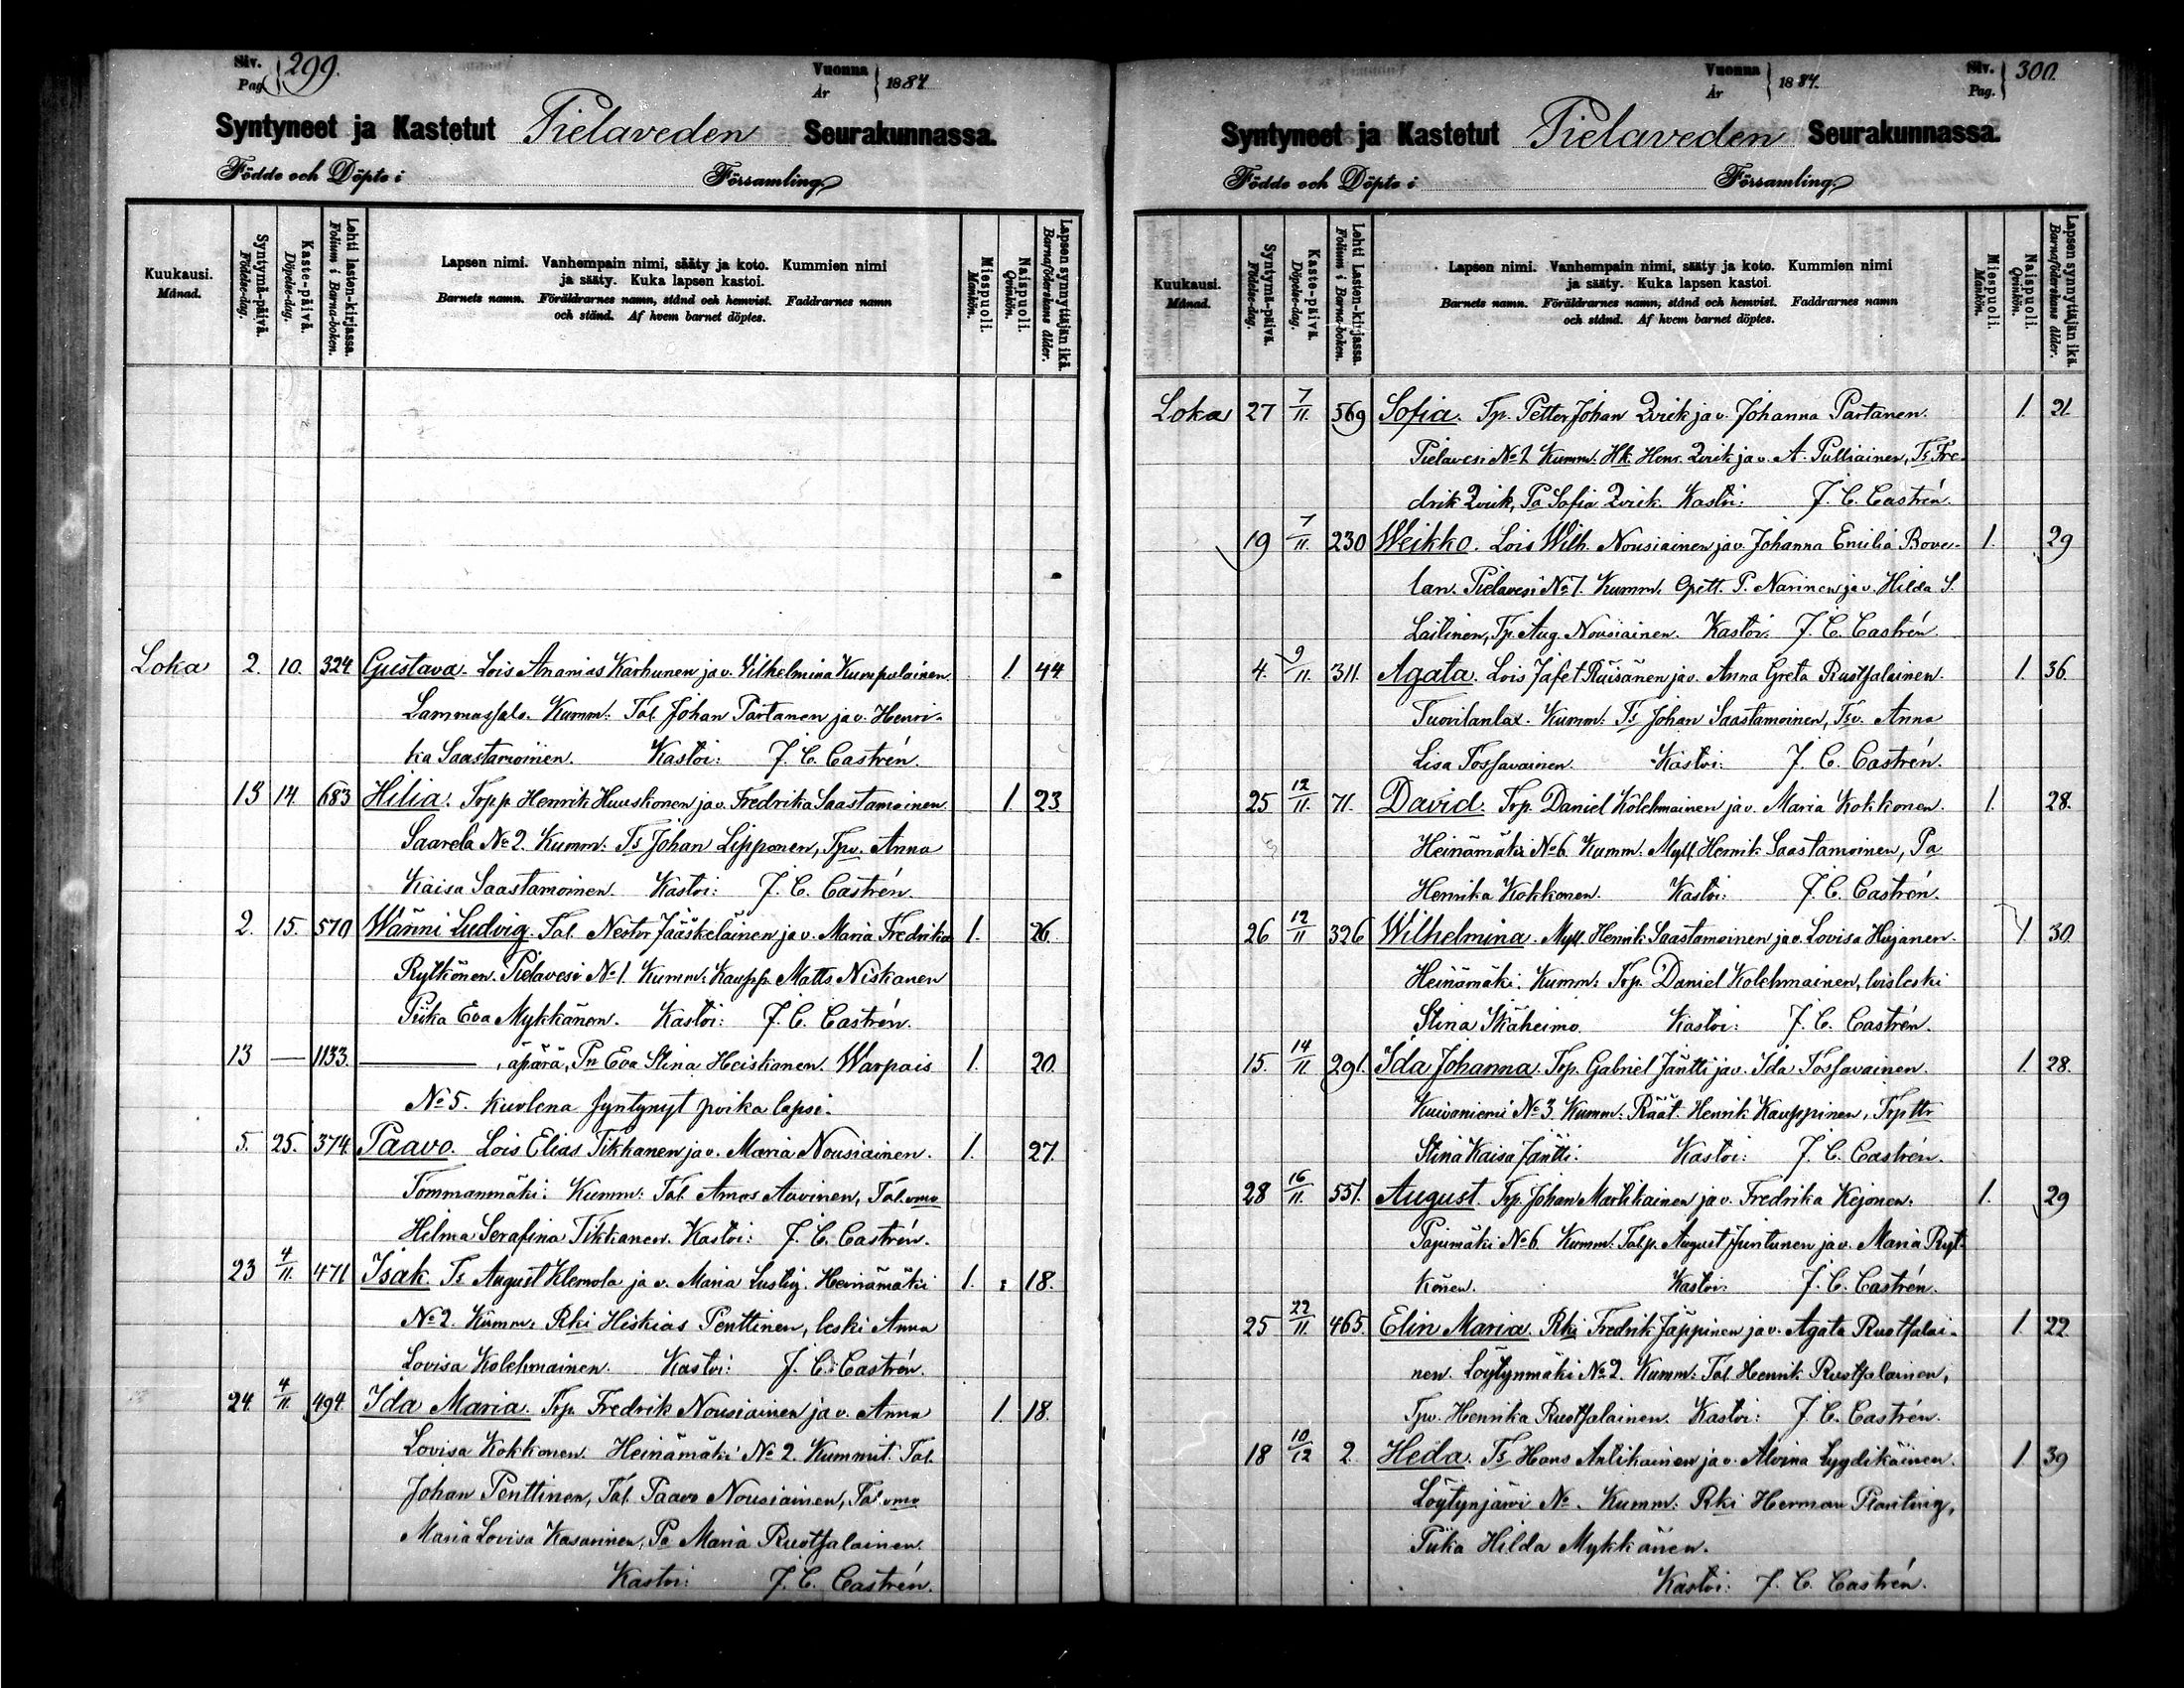 Siv. Pag. 299.
Vuonna År 1884
Syntyneet ja Kastetut Pielaveden Seurakunnassa.
Födde och Döpte i Församling.
Kuukausi. Månad.
Syntymä-päivä. Födelse-dag.
Kaste-päivä. Döpelse-dag.
Lehti lasten-kirjassa. Folium i Barna-boken.
Lapsen nimi. Vanhempain nimi, sääty ja koto. Kummien nimi
ja sääty. Kuka lapsen kastoi.
Barnets namn. Föräldrarnes namn, stånd och hemvist. Faddrarnes namn
och stånd. Af hvem barnet döptes.
Miespuoli. Mankön.
Naispuoli. Qvinkön.
Lapsen synnyttäjän ikä. Barnaföderskans ålder.
Loka 2. 10. 324 Gustava. Lois Ananias Karhunen ja v. Vilhelmina Kumpulainen. 1 44
Lammassalo. Kumm: Tal. Johan Partanen ja v. Henri-
ka Saastamoinen. Kastoi: J. C. Castrén.
13 14. 683 Hilia. Torpp Henrik Huuskonen ja v. Fredrika Saastamoinen. 1 23.
Saarela No 2. Kumm: Ts Johan Lipponen, Tpv. Anna
Kaisa Saastamoinen. Kastoi: J. C. Castrén.
2. 15. 570 Wäinni Ludvig. Tal. Nestor Jääskeläinen ja v. Maria Fredrika 1. 26.
Rytkönen. Pielavesi No 1. Kumm: Kaupp. Matts Niskanen
Piika Eva Mykkänen. Kastoi: J. C. Castrén.
13 — 1133. — , äpärä, Pn Eva Stina Heiskanen. Warpais 1. 20.
No 5. kuolena syntynyt poika lapsi.
5. 25. 374. Paavo. Lois Elias Tikkanen ja v. Maria Nousiainen. 1. 27.
Tommanmäki. Kumm: Tal. Amos Auvinen, Tal. emo
Hilma Serafina Tikkanen. Kastoi: J. C. Castrén.
23 4/11. 471 Isak. Ts August Klemola ja v. Maria Lustig. Heinämäki 1. 18.
No 2. Kumm: Rki Hiskias Penttinen, leski Anna
Lovisa Kolehmainen. Kastoi: J. C. Castrén.
24. 4/11. 494. Ida Maria. Trp. Fredrik Nousiainen ja v. Anna 1. 18.
Lovisa Kokkonen. Heinämäki No 2. Kummit: Tal.
Johan Penttinen, Tal. Paavo Nousiainen, Tal. emo
Maria Lovisa Kasurinen, Pa Maria Ruotsalainen.
Kastoi: J. C. Castrén.
Vuonna År 1884.
Siv. Pag. 300.
Syntyneet ja Kastetut Pielaveden Seurakunnassa.
Födde och Döpte i Församling.
Kuukausi. Månad.
Syntymä-päivä. Födelse-dag.
Kaste-päivä. Döpelse-dag.
Lehti Lasten-kirjassa. Folium i Barna-boken.
Lapsen nimi. Vanhempain nimi, sääty ja koto. Kummien nimi
ja sääty. Kuka lapsen kastoi.
Barnets namn. Föräldrarnes namn, stånd och hemvist. Faddrarnes namn
och stånd. Af hvem barnet döptes.
Miespuoli. Mankön.
Naispuoli. Qvinkön.
Lapsen synnyttäjän ikä. Barnaföderskans ålder.
Loka 27 7/11. 569 Sofia. Tp. Petter Johan Qvick ja v. Johanna Partanen. 1. 21.
Pielavesi No 2. Kumm: Hk. Henr. Qvick ja v. A. Pulliainen, Ts Fre-
drik Qvick, Pa Sofia Qvick. Kastoi: J. C. Castrén.
19 7/11. 230 Weikko. Lois Wilh. Nousiainen ja v. Johanna Emilia Bove- 1. 29
lan. Pielavesi No 7. Kumm. Opett. P. Narinen ja v. Hilda S.
Laitinen, Tp. Aug. Nousiainen. Kastoi: J. C. Castrén
4. 9/11. 311. Agata. Lois Jafet Räisänen ja v. Anna Greta Ruotsalainen. 1. 36.
Tuovilanlax. Kumm: Ts Johan Saastamoinen, Tsv. Anna
Lisa Tossavainen. Kastoi: J. C. Castrén.
25 12/11. 71. David. Trp. Daniel Kolehmainen ja v. Maria Kokkonen. 1. 28.
Heinämäki No 6. Kumm: Myll. Henrik Saastamoinen, Pa
Henrika Kokkonen. Kastoi: J. C. Castrén.
26 12/11 326 Wilhelmina. Myll. Henrik Saastamoinen ja v. Lovisa Hujanen. 1 30.
Heinämäki. Kumm: Trp. Daniel Kolehmainen, loisleski
Stina Ikäheimo. Kastoi: J. C. Castrén.
15. 14/11. 291. Ida Johanna. Trp. Gabriel Jäntti ja v. Ida Tossavainen. 1. 28.
Kuivaniemi No 3. Kumm: Räät. Henrik Kauppinen, Trp ttr
Stina Kaisa Jäntti. Kastoi: J. C. Castrén.
28 16/11. 551. August. Trp. Johan Markkainen ja v. Fredrika Kejonen. 1. 29
Pajumäki No 6. Kumm: Talp. August Juntunen ja v. Maria Ryt-
könen. Kastoi: J. C. Castrén.
25 22/11. 465. Elin Maria. Rki Fredrik Jäppinen ja v. Agata Ruotsalai- 1. 22.
nen. Löytynmäki No 2. Kumm: Tal. Henrik Ruotsalainen,
Tpv. Henrika Ruotsalainen. Kastoi: J. C. Castrén.
18 10/12 2. Heda. Ts Hans Antikainen ja v. Alvina Lyydikäinen. 1 39
Löytynjärvi No . Kumm: Rki Herman Planting,
Piika Hilda Mykkänen.
Kastoi: J. C. Castrén.